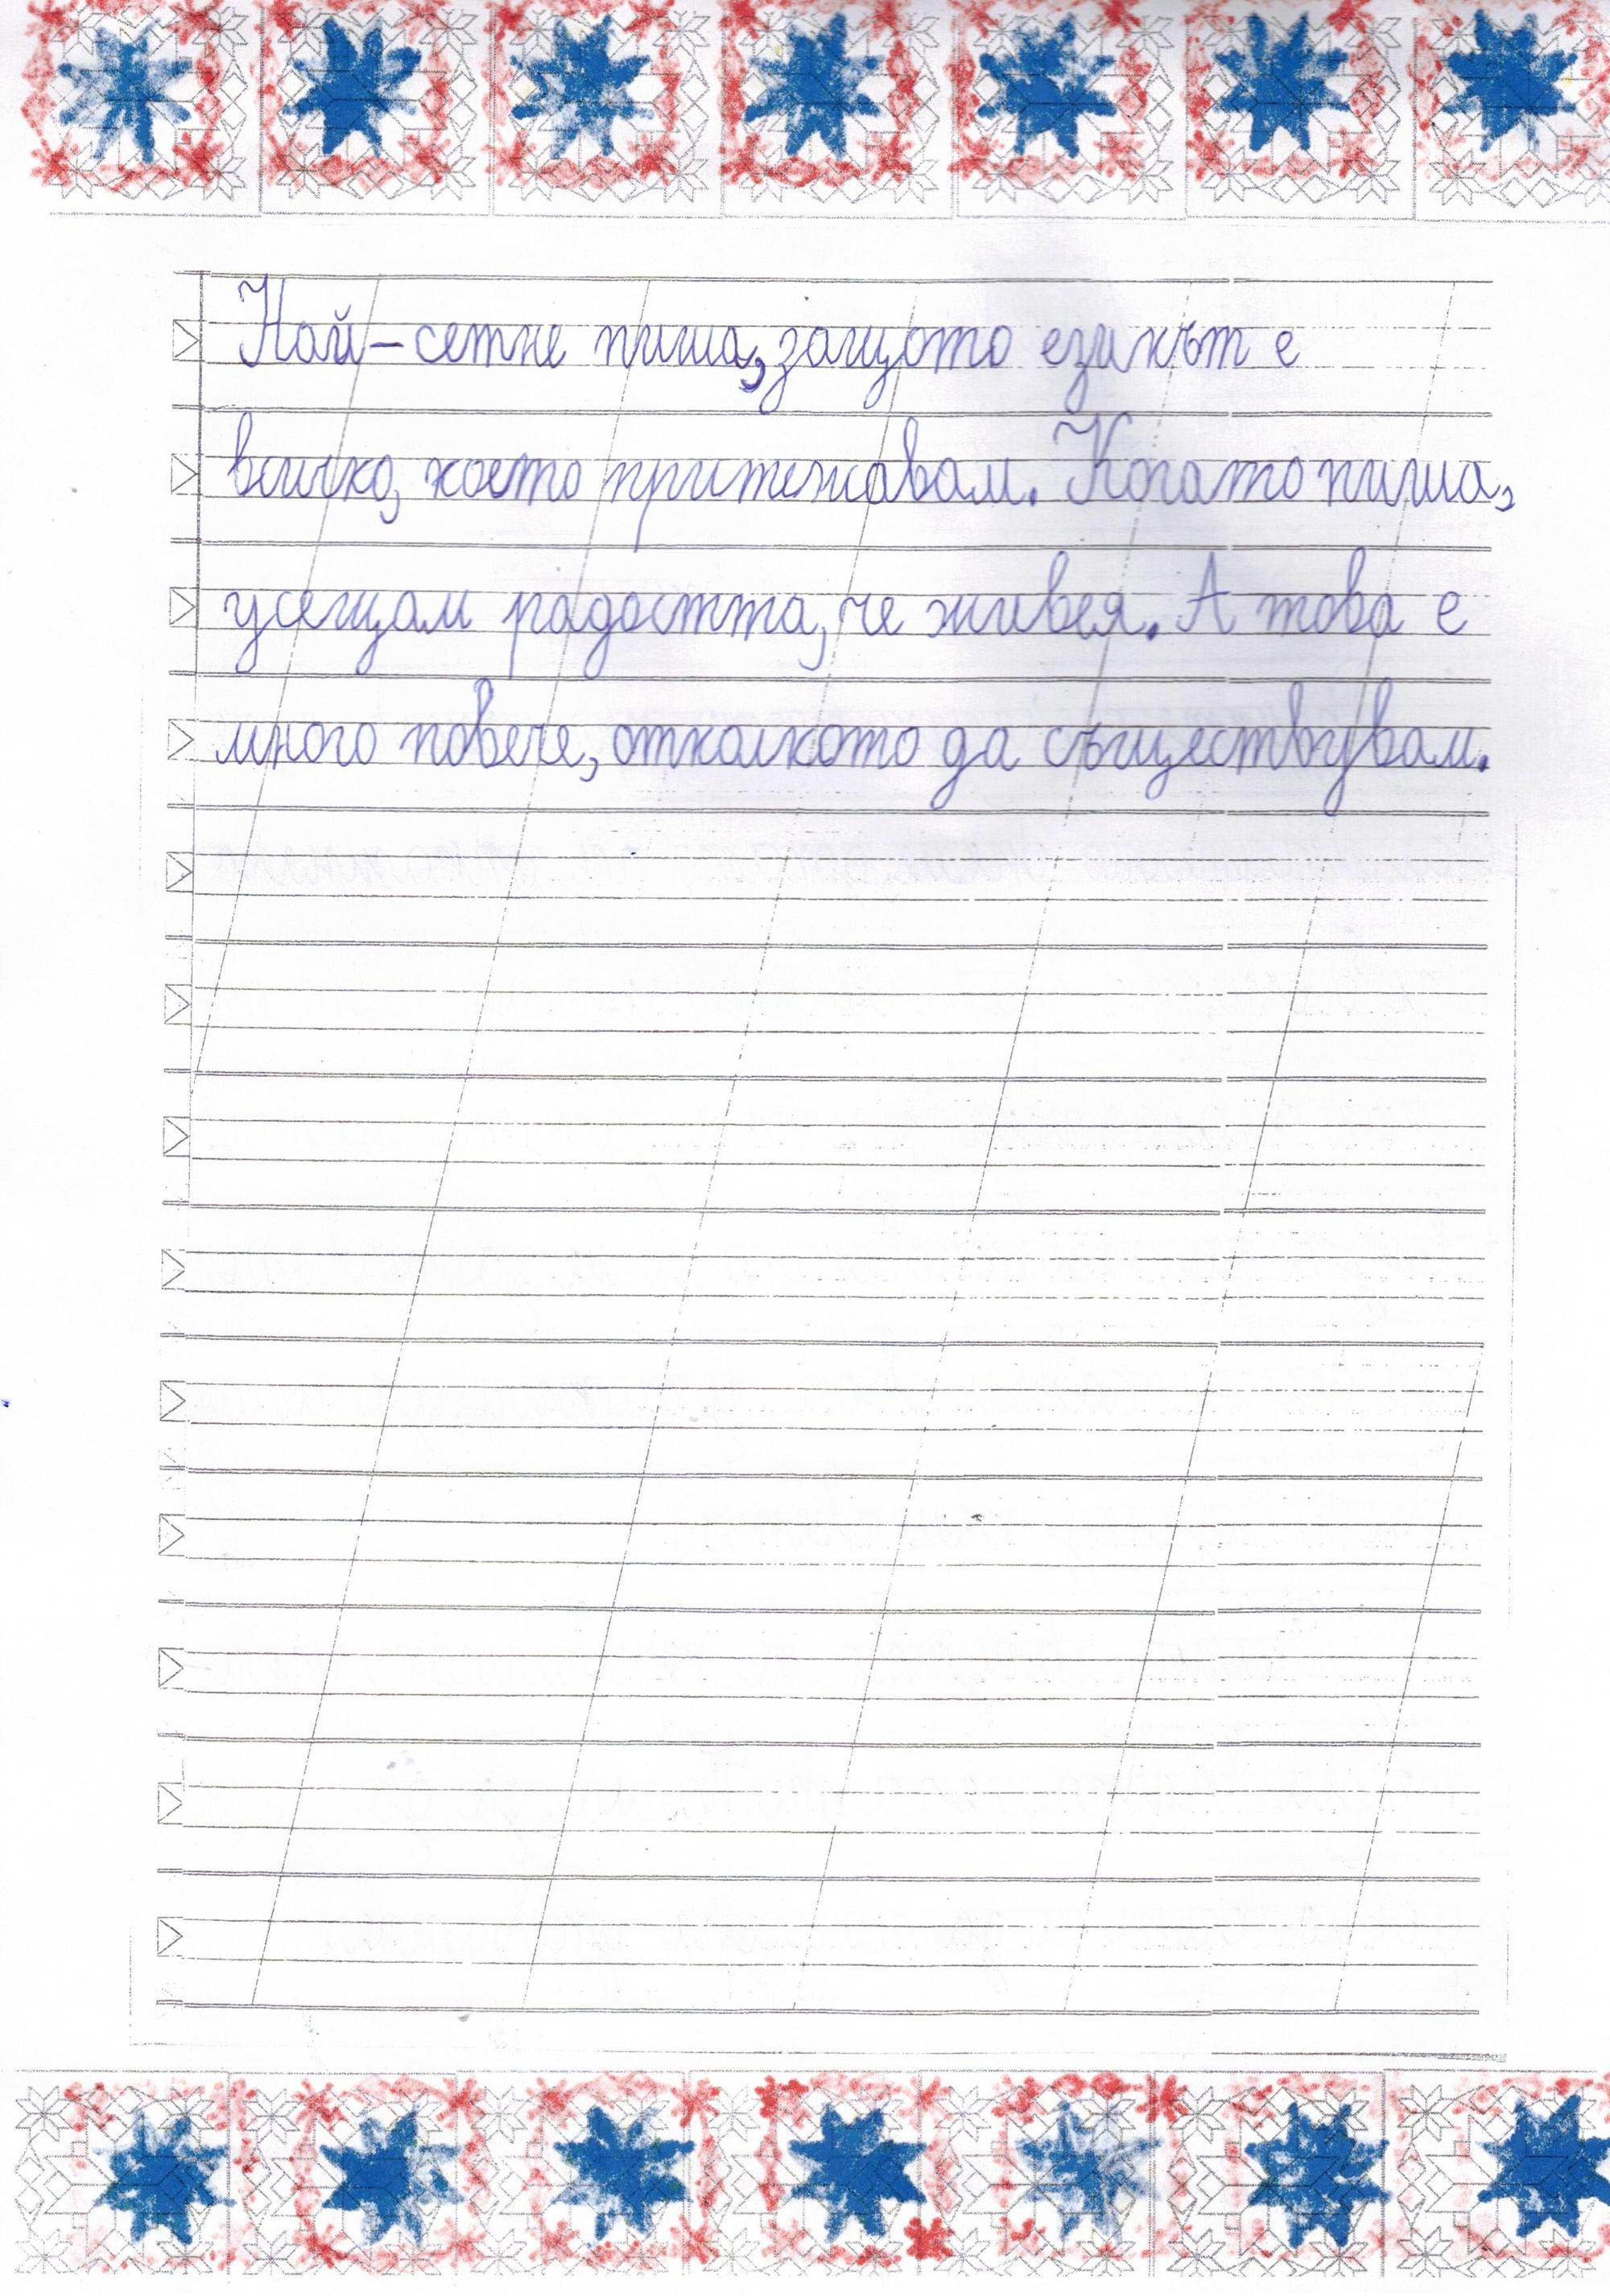 Най-сетне пиша, защото езикът е
всичко, което притежавам. Когато пиша,
усещам радостта, че живея. А това е
много повече, отколкото да съществувам.